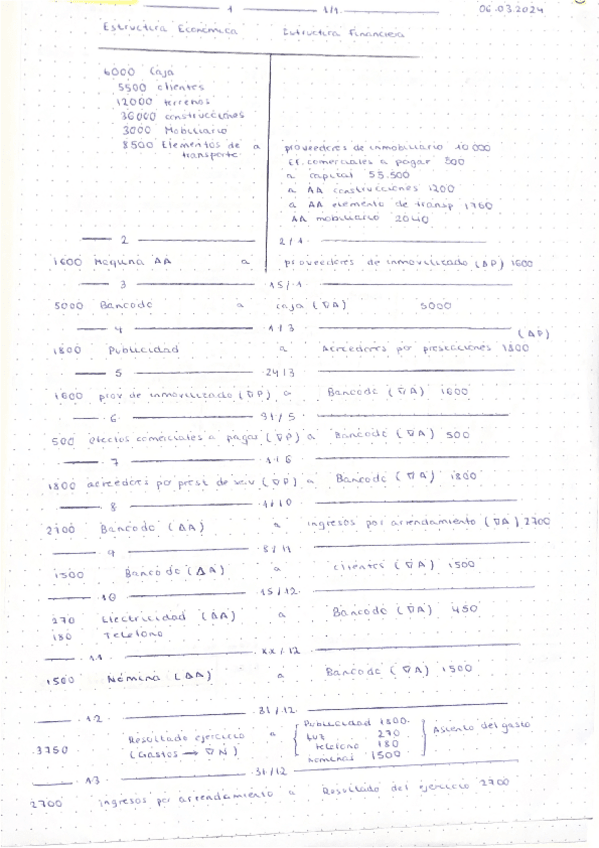 1 1/1. 06.03.2024
Estructura Económica Estructura Financiera
6000 Caja
5500 clientes
12000 terrenos
36000 construcciones
3000 Mobiliario
8500 Elementos de a proveedores de inmobiliario 10 000
transporte Ef. comerciales a pagar 500
a capital 55.500
a AA construcciones 1200
a AA elemento de transp 1760
AA mobiliario 2040
2 2/1.
1600 Maquina AA a proveedores de inmovilizado (ΔP) 1600
3 15/.1
5000 Bancode a caja (∇A) 5000
4 1/3
1800 Publicidad a Acreedores por prestaciones 1800 (ΔP)
5 24/3
1600 prov de inmovilizado (∇P) a Bancode (∇A) 1600
6 31/5
500 efectos comerciales a pagar (∇P) a Bancode (∇A) 500
7 1/6
1800 acreedores po prest de serv (∇P) a Bancode (∇A) 1800
8 1/10
2700 Bancode (ΔA) a ingresos por arrendamiento (∇A) 2700
9 8/11
1500 Bancode (ΔA) a clientes (∇A) 1500
10 15/12.
270 Electricidad (ΔA) a Bancode (∇A) 450
180 Telefono
11 xx/12
1500 Nómina (ΔA) a Bancode (∇A) 1500
12 31/12.
3750 Resultado ejercicio a Publicidad 1800. Asiento del gasto
(Gastos → ∇N) Luz 270
telefono 180
nominas 1500
13 31/12
2700 ingresos por arrendamiento a Resultado del ejercicio 2700